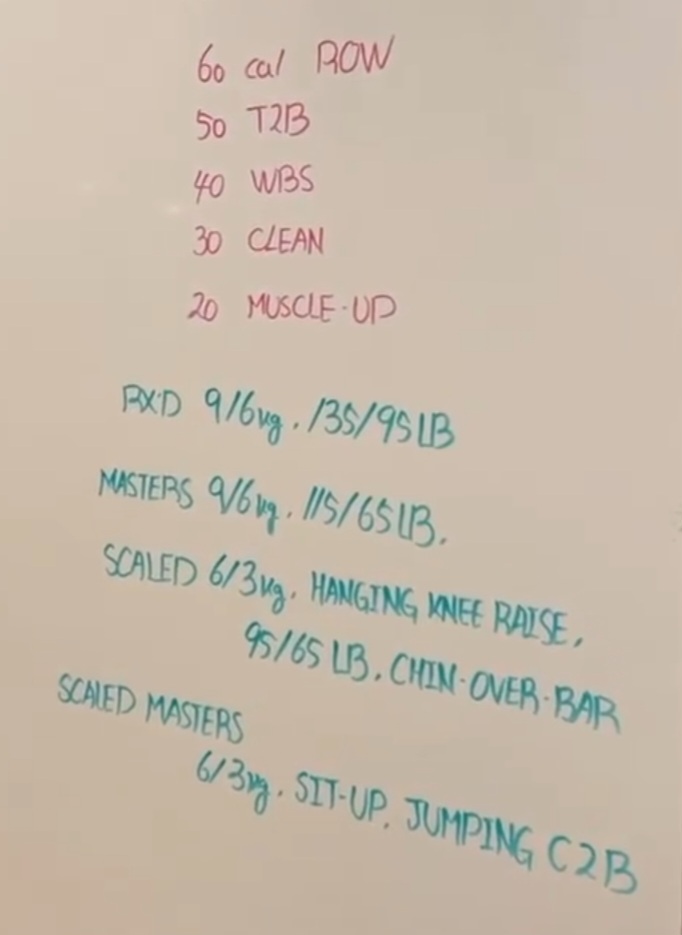 60 cal ROW
50 T2B
40 WBS
30 CLEAN
20 MUSCLE-UP
RX'D 9/6kg, 135/95 LB
MASTERS 9/6kg, 115/65 LB,
SCALED 6/3kg, HANGING KNEE RAISE,
95/65 LB, CHIN-OVER-BAR
SCALED MASTERS
6/3kg, SIT-UP, JUMPING C2B